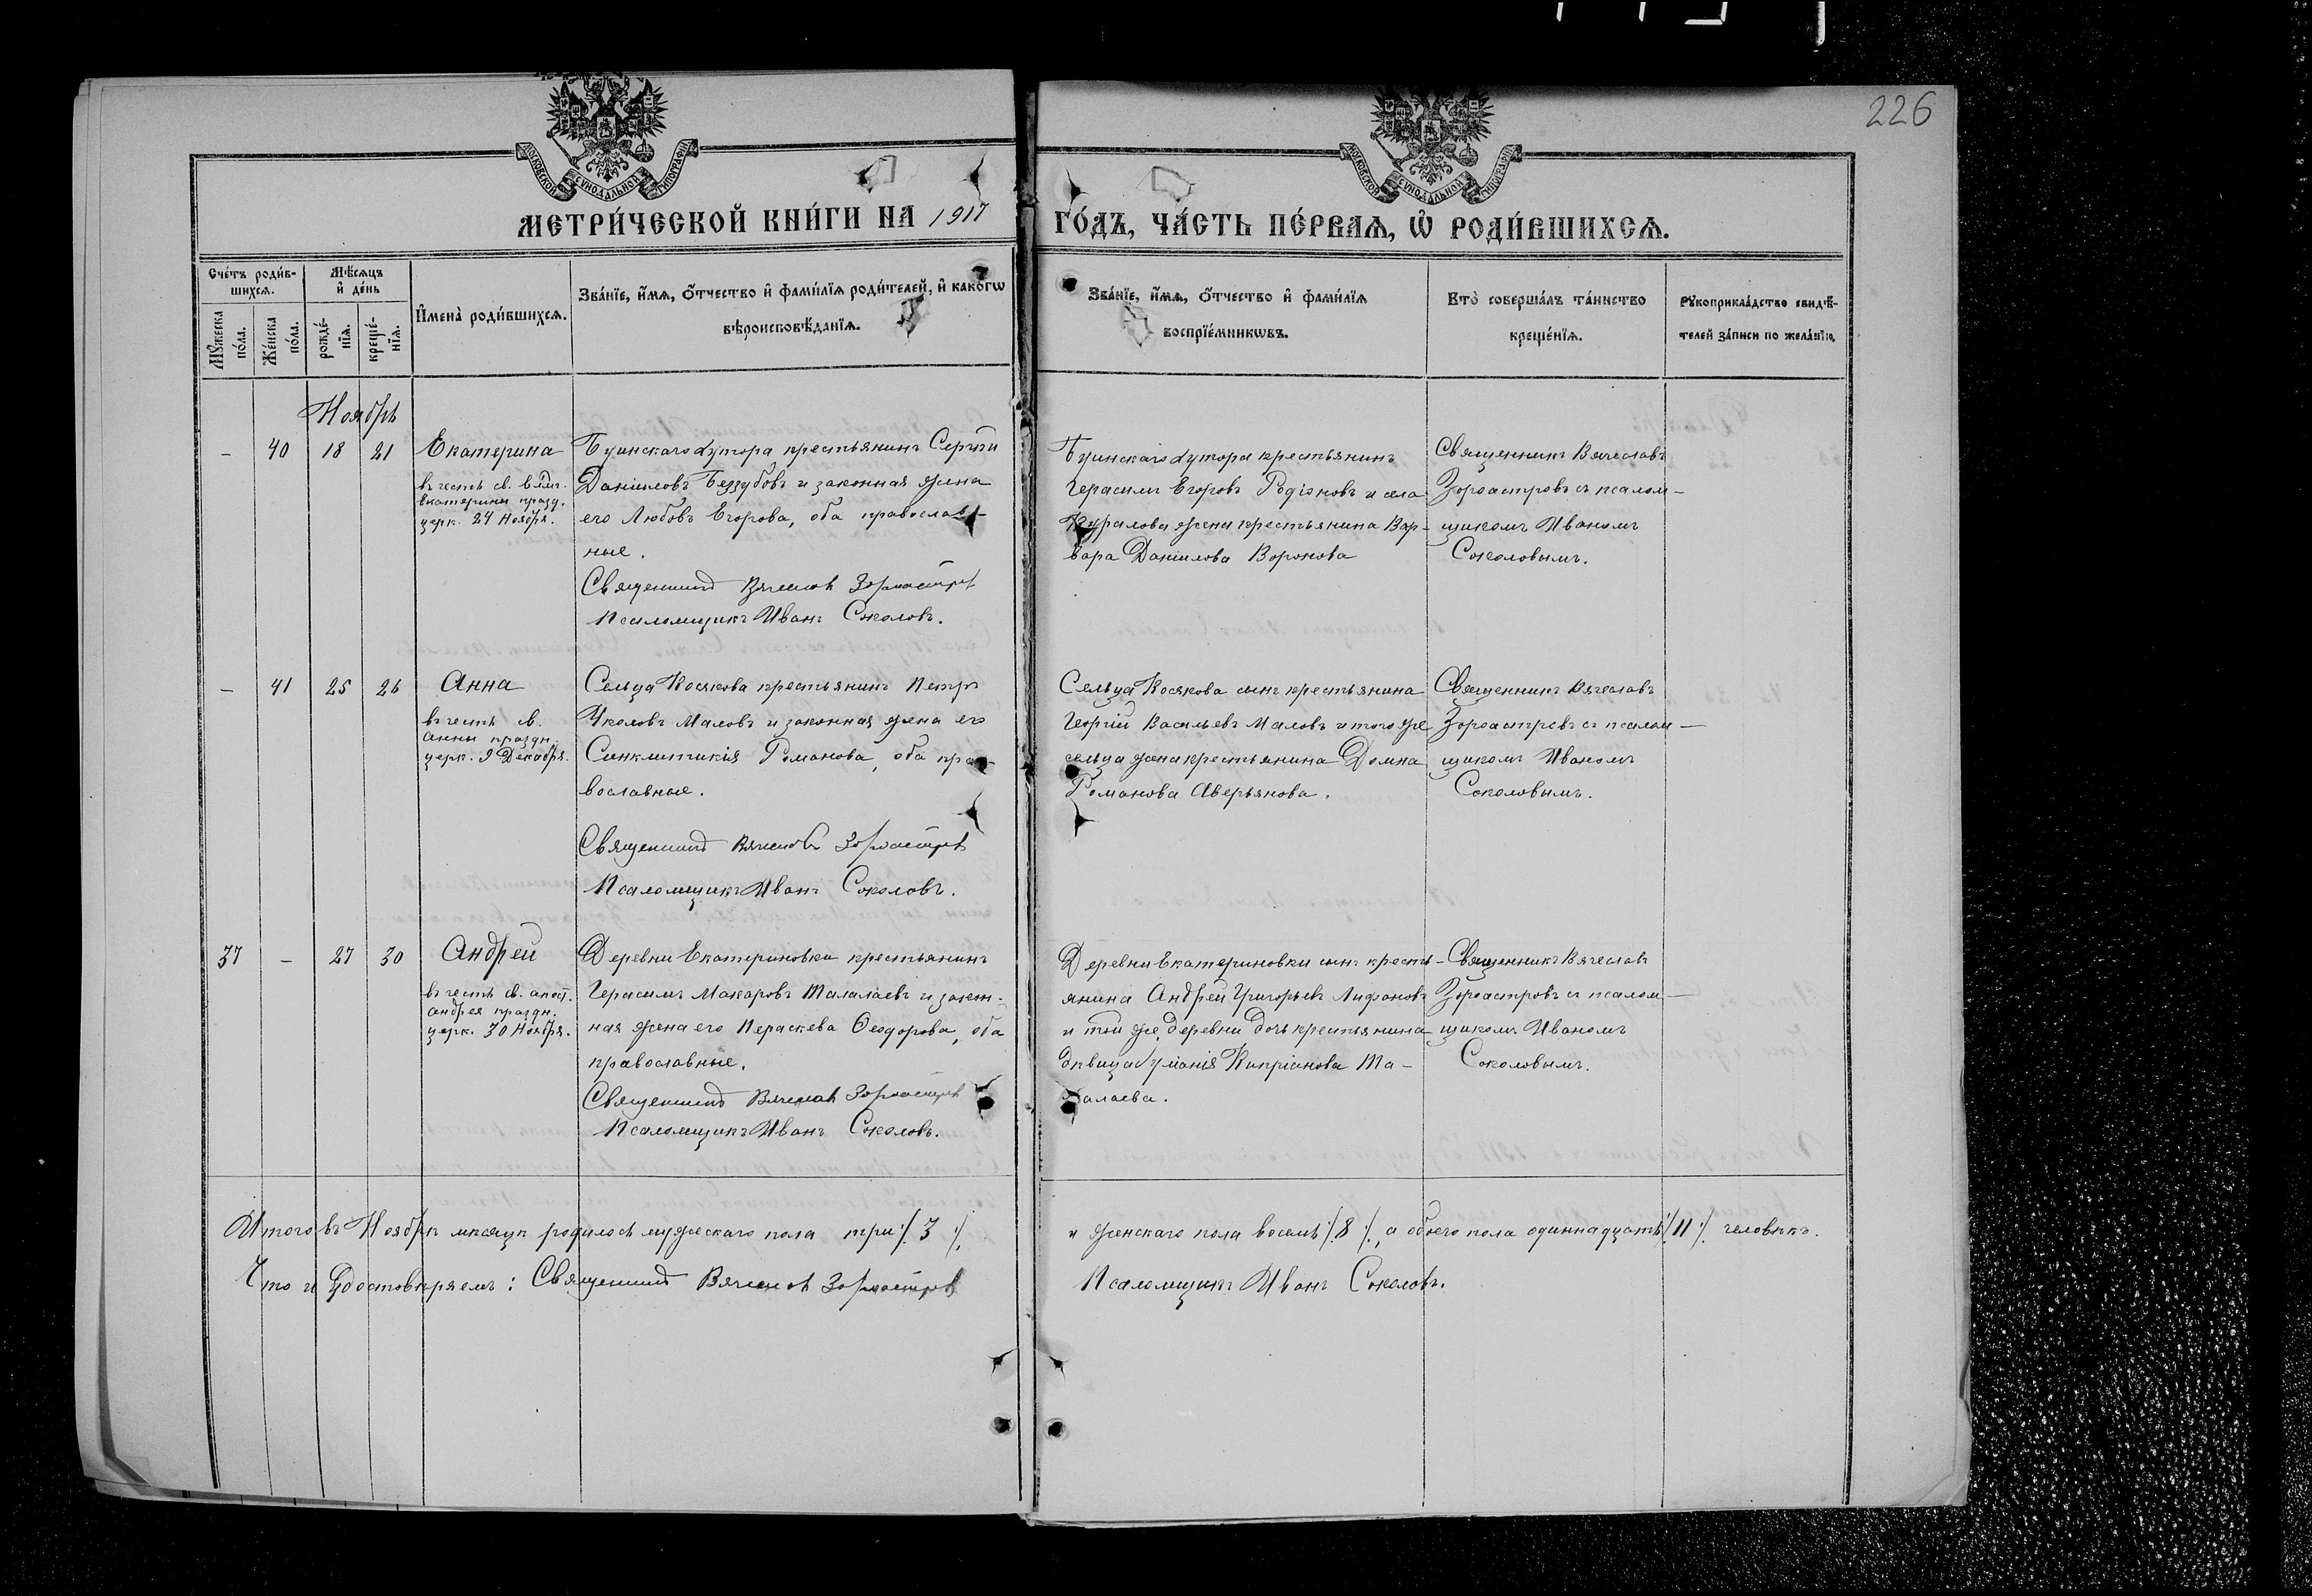 226
МОСКОВСКОЙ СѴНОДАЛЬНОЙ ТИПОГРАФІИ
МОСКОВСКОЙ СѴНОДАЛЬНОЙ ТИПОГРАФІИ
МЕТРИ́ЧЕСКОЙ КНИ́ГИ НА 1917
ГО́ДЪ, ЧА́СТЬ ПЕ́РВАѦ, Ѡ҆ РОДИ́ВШИХСѦ.
Сче́тъ роди́в-
шихсѧ.
Мѣ́сѧцъ
и҆ де́нь
Мꙋ́жеска
по́ла.
Же́нска
по́ла.
рожде́-
нїѧ.
креще́-
нїѧ.
И҆мена̀ роди́вшихсѧ.
Зва́нїе, и҆́мѧ, ѻ҆́тчество и҆ фами́лїѧ роди́телей, и҆ како́гѡ
вѣроисповѣ́данїѧ.
Зва́нїе, и҆́мѧ, ѻ҆́тчество и҆ фами́лїѧ
воспрїе́мникѡвъ.
Кто̀ соверша́лъ та́инство
креще́нїѧ.
Рꙋкоприкла́дство свидѣ́-
телей за́писи по жела́нїю.
Ноябрь
– 40 18 21 Екатерина
въ честь св. влмч.
Екатерины празд.
церк. 24 Ноября.
Буинскаго хутора крестьянинъ Сергѣй
Даніиловъ Беззубовъ и законная жена
его Любовь Егорова, оба православ-
ные.
Священникъ Вячеславъ Зороастровъ
Псаломщикъ Иванъ Соколовъ.
Буинскаго хутора крестьянинъ
Герасимъ Егоровъ Родіоновъ и села
Куралова жена крестьянина Вар-
вара Даніилова Воронова
Священникъ Вячеславъ
Зороастровъ съ псалом-
щикомъ Иваномъ
Соколовымъ.
– 41 25 26 Анна
въ честь св.
Анны праздн.
церк. 9 Декабря.
Сельца Косякова крестьянинъ Петръ
Маловъ и законная жена его
Синклитикія Романова, оба пра-
вославные.
Священникъ Вячеславъ Зороастровъ
Псаломщикъ Иванъ Соколовъ.
Сельца Косякова сынъ крестьянина
Георгій Васильевъ Маловъ и того же
сельца жена крестьянина Домна
Романова Аверьянова.
Священникъ Вячеславъ
Зороастровъ съ псалом-
щикомъ Иваномъ
Соколовымъ.
37 – 27 30 Андрей
въ честь св. апост.
Андрея праздн.
церк. 30 Ноября.
Деревни Екатериновки крестьянинъ
Герасимъ Макаровъ Талалаевъ и закон-
ная жена его Параскева Ѳеодорова, оба
православные.
Священникъ Вячеславъ Зороастровъ
Псаломщикъ Иванъ Соколовъ.
Деревни Екатериновки сынъ кресть-
янина Андрей Григорьевъ Лифановъ
и той же деревни дочь крестьянина
дѣвица Кипріанова Та-
лалаева.
Священникъ Вячеславъ
Зороастровъ съ псалом-
щикомъ Иваномъ
Соколовымъ.
Итого въ Ноябрѣ мѣсяцѣ родилось мужескаго пола три /:3:/,
и женскаго пола восемь /:8:/, а обоего пола одиннадцать /:11:/ человѣкъ.
Что и удостовѣряемъ: Священникъ Вячеславъ Зороастровъ
Псаломщикъ Иванъ Соколовъ.